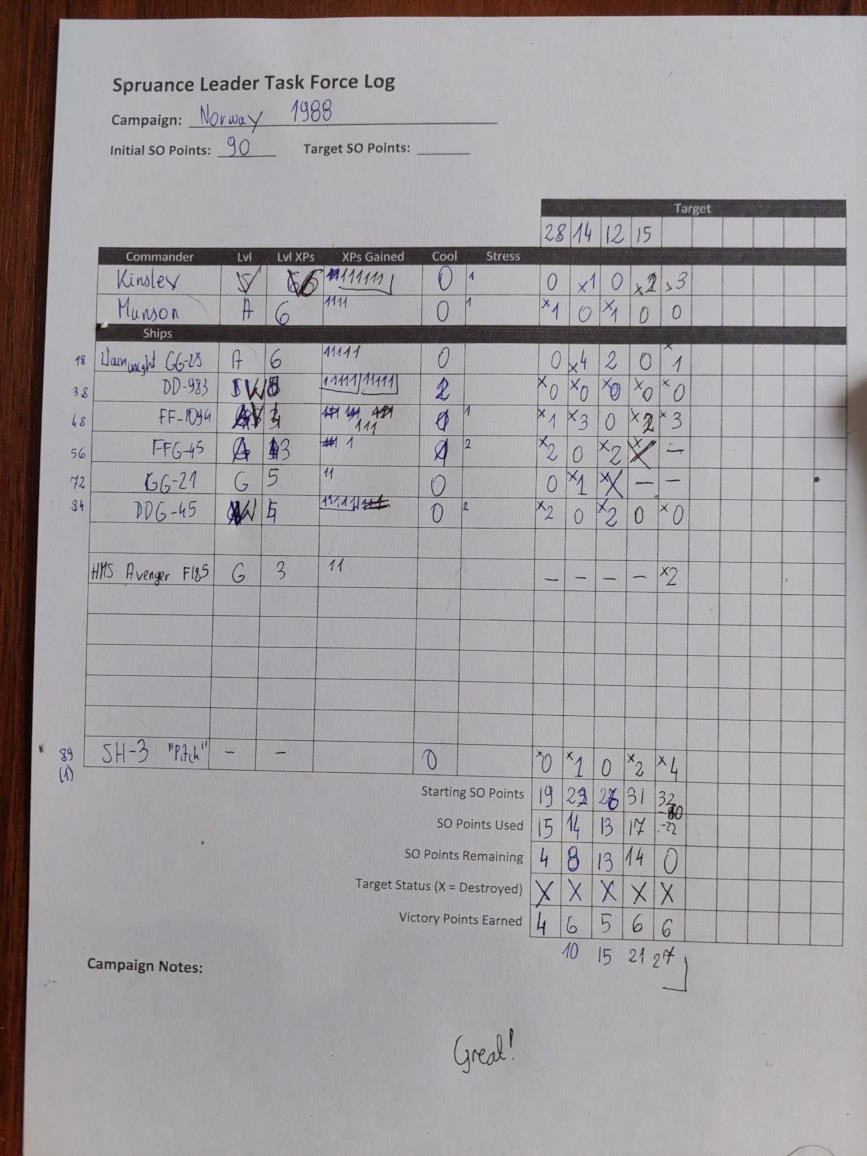 Spruance Leader Task Force Log
Campaign: Norway 1988
Initial SO Points: 90 Target SO Points:
Target
28 14 12 15
Commander Lvl Lvl XPs XPs Gained Cool Stress
Kinsley 6 1111111 0 1 0 x1 0 x2 x3
Munson A 6 1111 0 1 x1 0 x1 0 0
Ships
18 Wainwright CG-28 A 6 11111 0 0 x4 2 0 x1
38 DD-983 11111 11111 2 x0 x0 x0 x0 x0
48 FF-1094 111 1 x1 x3 0 x2 x3
56 FFG-45 3 1 2 x2 0 x2 X -
72 CG-21 G 5 11 0 0 x1 X - -
84 DDG-45 0 2 x2 0 x2 0 x0
HMS Avenger F185 G 3 11 - - - - x2
89 SH-3 "Pitch" - - 0 x0 x1 0 x2 x4
(1)
Starting SO Points 19 31 32
SO Points Used 15 14 13 17
SO Points Remaining 4 8 13 14 0
Target Status (X = Destroyed) X X X X X
Victory Points Earned 4 6 5 6 6
10 15 21 27
Campaign Notes:
Great!